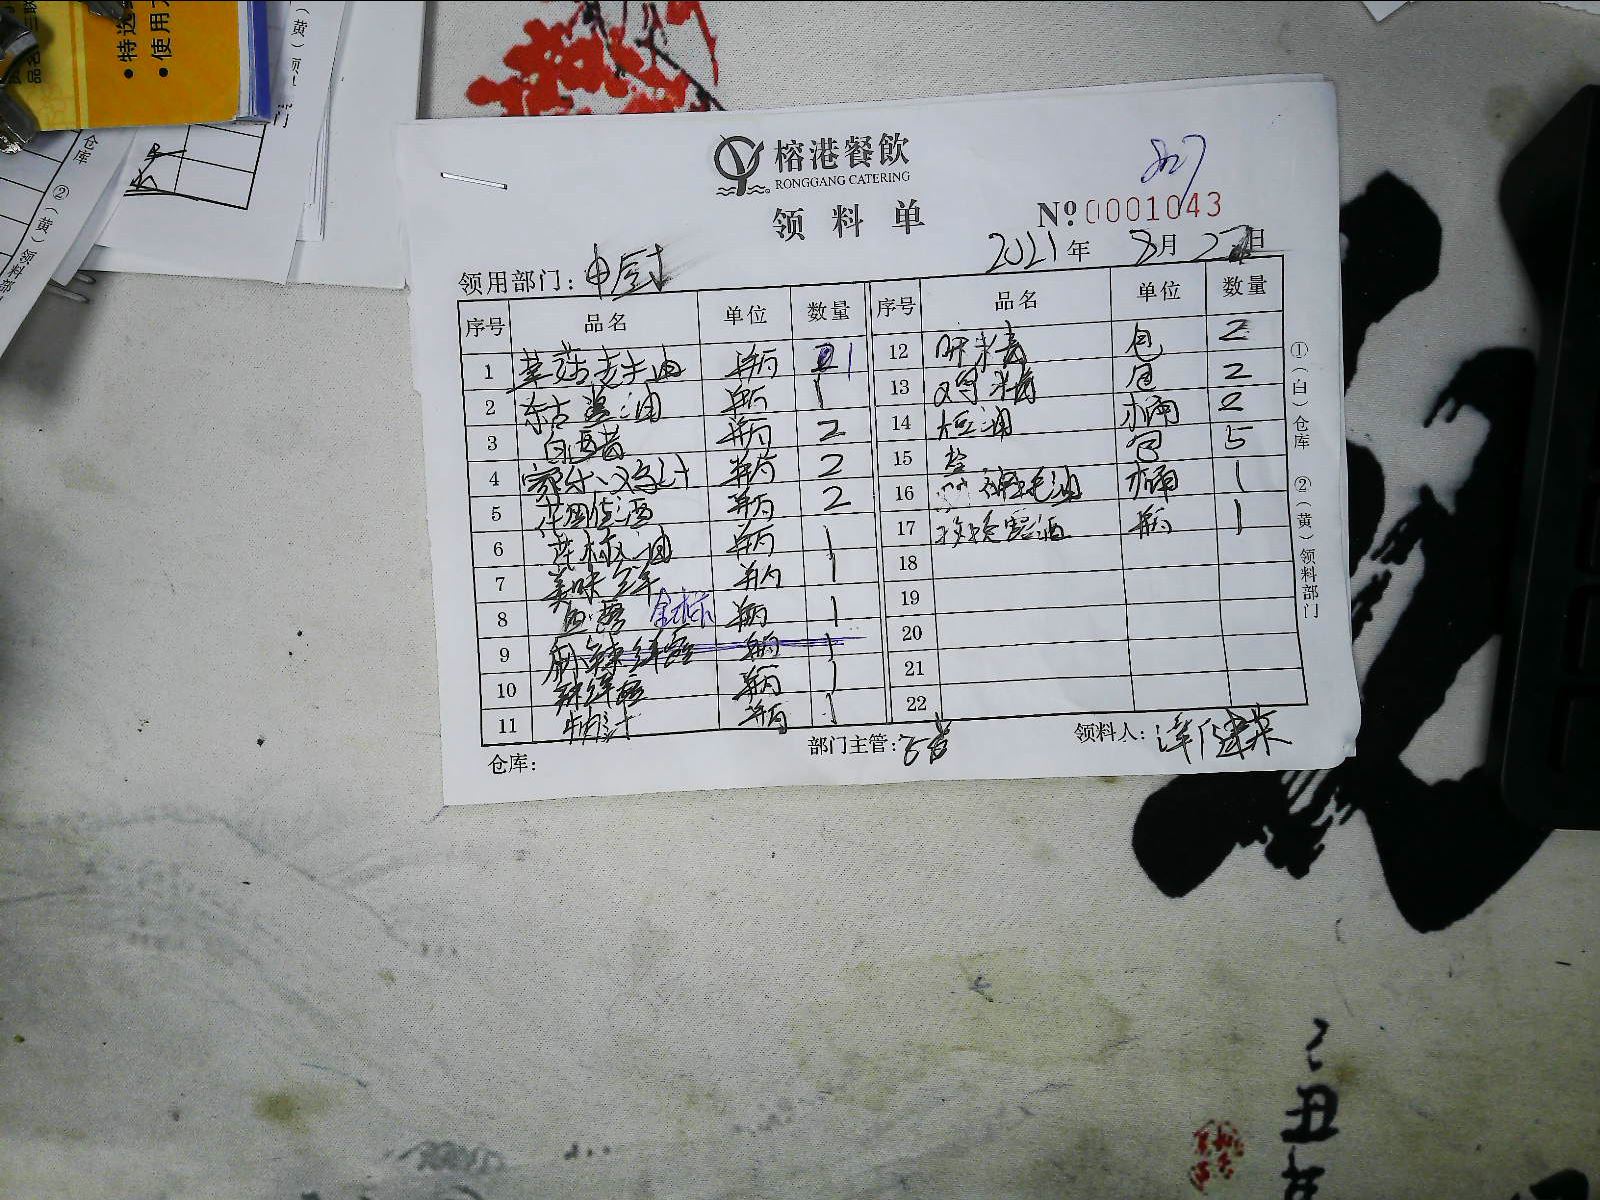 • 特送
• 使用
品名
仓库 ②(黄)领料部
榕港餐飲
RONGGANG CATERING
827
领料单
№ 0001043
领用部门: 中厨
2021年 8月 27日
序号 品名 单位 数量
1 草菇老抽 瓶 1
2 东古酱油 瓶 1
3 白醋 瓶 2
4 家乐鸡汁 瓶 2
5 花雕酒 瓶 2
6 花椒油 瓶 1
7 美味鲜 瓶 1
8 鱼露 金标 瓶 1
9 麻辣鲜露 瓶 1
10 辣鲜露 瓶 1
11 瓶 1
序号 品名 单位 数量
12 味精 包 2
13 鸡精 包 2
14 大豆油 桶 2
15 盐 包 5
16 油 桶 1
17 玫瑰露酒 瓶 1
18
19
20
21
22
①(白)仓库 ②(黄)领料部门
仓库:
部门主管:
领料人:
丑